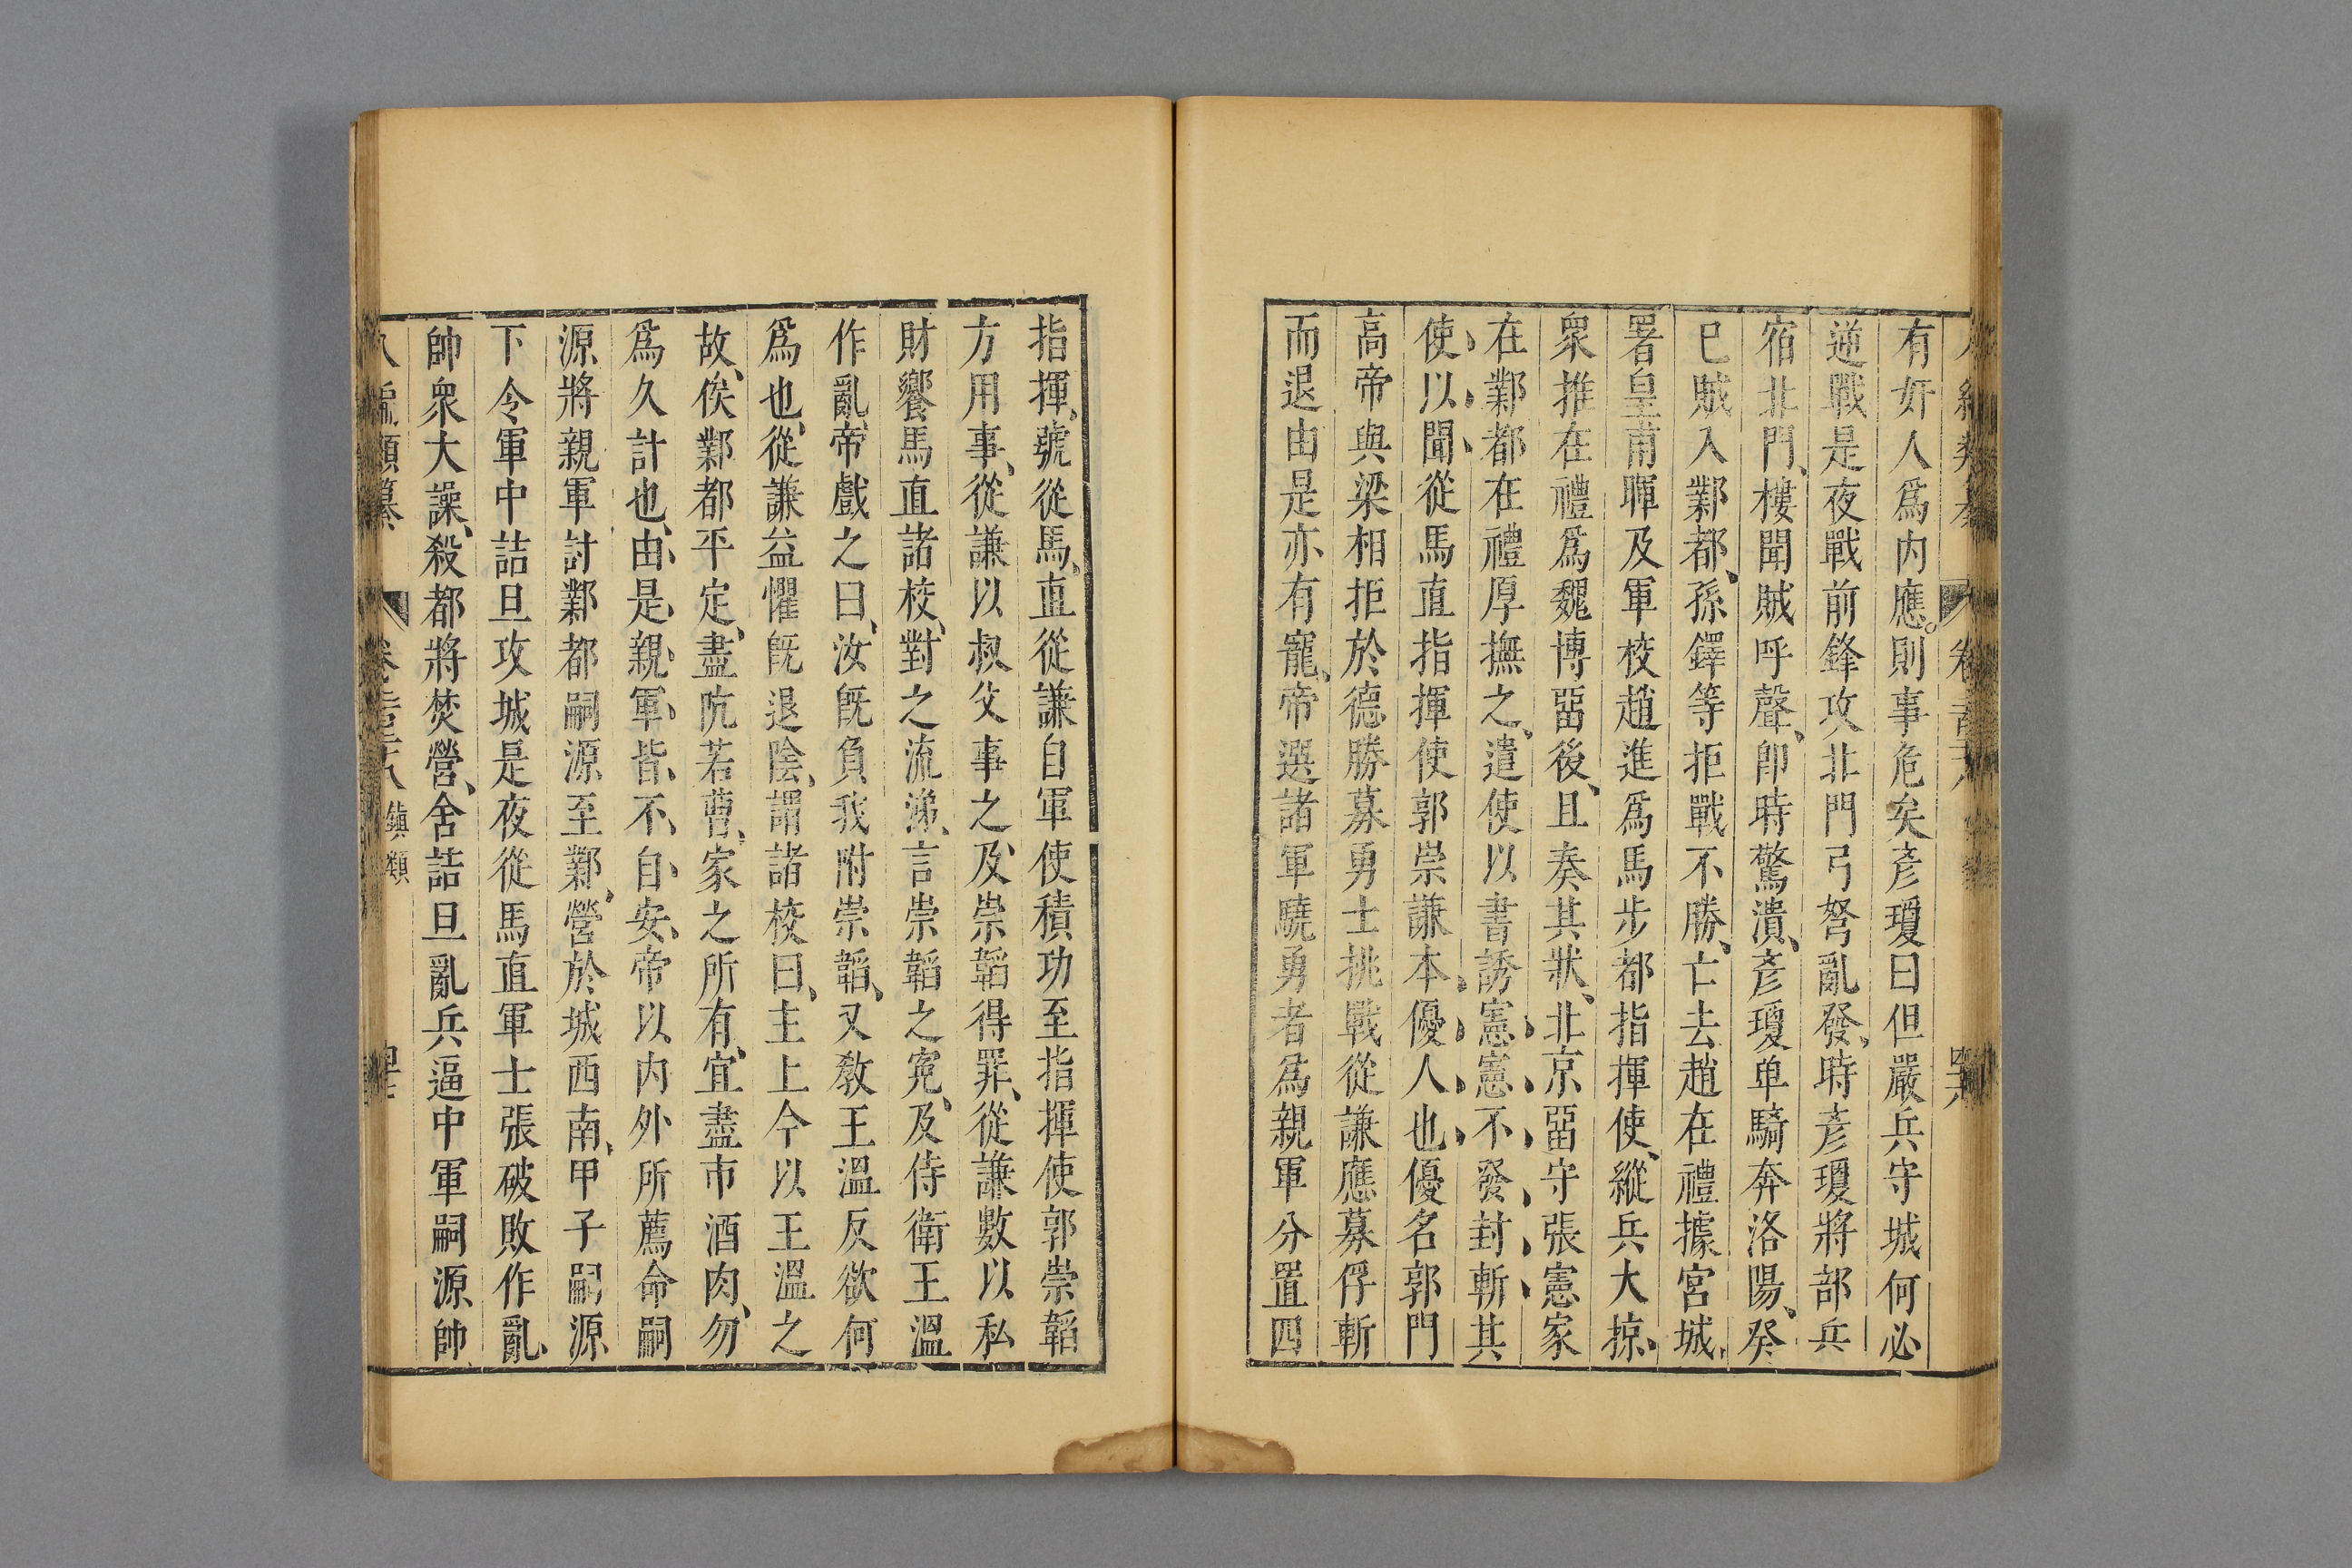 有奸人爲内應則事危矣彥瓊曰但嚴兵守城何必
逆戰是夜戰前鋒攻北門弓弩亂發時彥瓊將部兵
宿北門樓聞賊呼聲即時驚潰彥瓊单騎奔洛陽癸
巳賊入鄴都孫鐸等拒戰不勝亡去趙在禮據宮城
署皇甫暉及軍校趙進爲馬步都指揮使縱兵大掠
衆推在禮爲魏博畱後且奏其狀北京畱守張憲家
在鄴都在禮厚撫之遣使以書誘憲憲不發封斬其
使以聞從馬直指揮使郭崇謙本優人也優名郭門
高帝與梁相拒於德勝募勇士挑戰從謙應募俘斬
而退由是亦有寵帝選諸軍驍勇者爲親軍分置四
指揮號從馬直從謙自軍使積功至指揮使郭崇韜
方用事從謙以叔父事之及崇韜得罪從謙數以私
財饗馬直諸校對之流涕言崇韜之寃及侍衛王溫
作亂帝戲之曰汝旣負我附崇韜又教王溫反欲何
爲也從謙益懼旣退陰謂諸校曰主上今以王溫之
故俟鄴都平定盡阬若曹家之所有宜盡市酒肉勿
爲久計也由是親軍皆不自安帝以内外所薦命嗣
源將親軍討鄴都嗣源至鄴營於城西南甲子嗣源
下令軍中詰旦攻城是夜從馬直軍士張破敗作亂
帥衆大譟殺都將焚營舍詰旦亂兵逼中軍嗣源帥
八編類纂 卷 鎮類